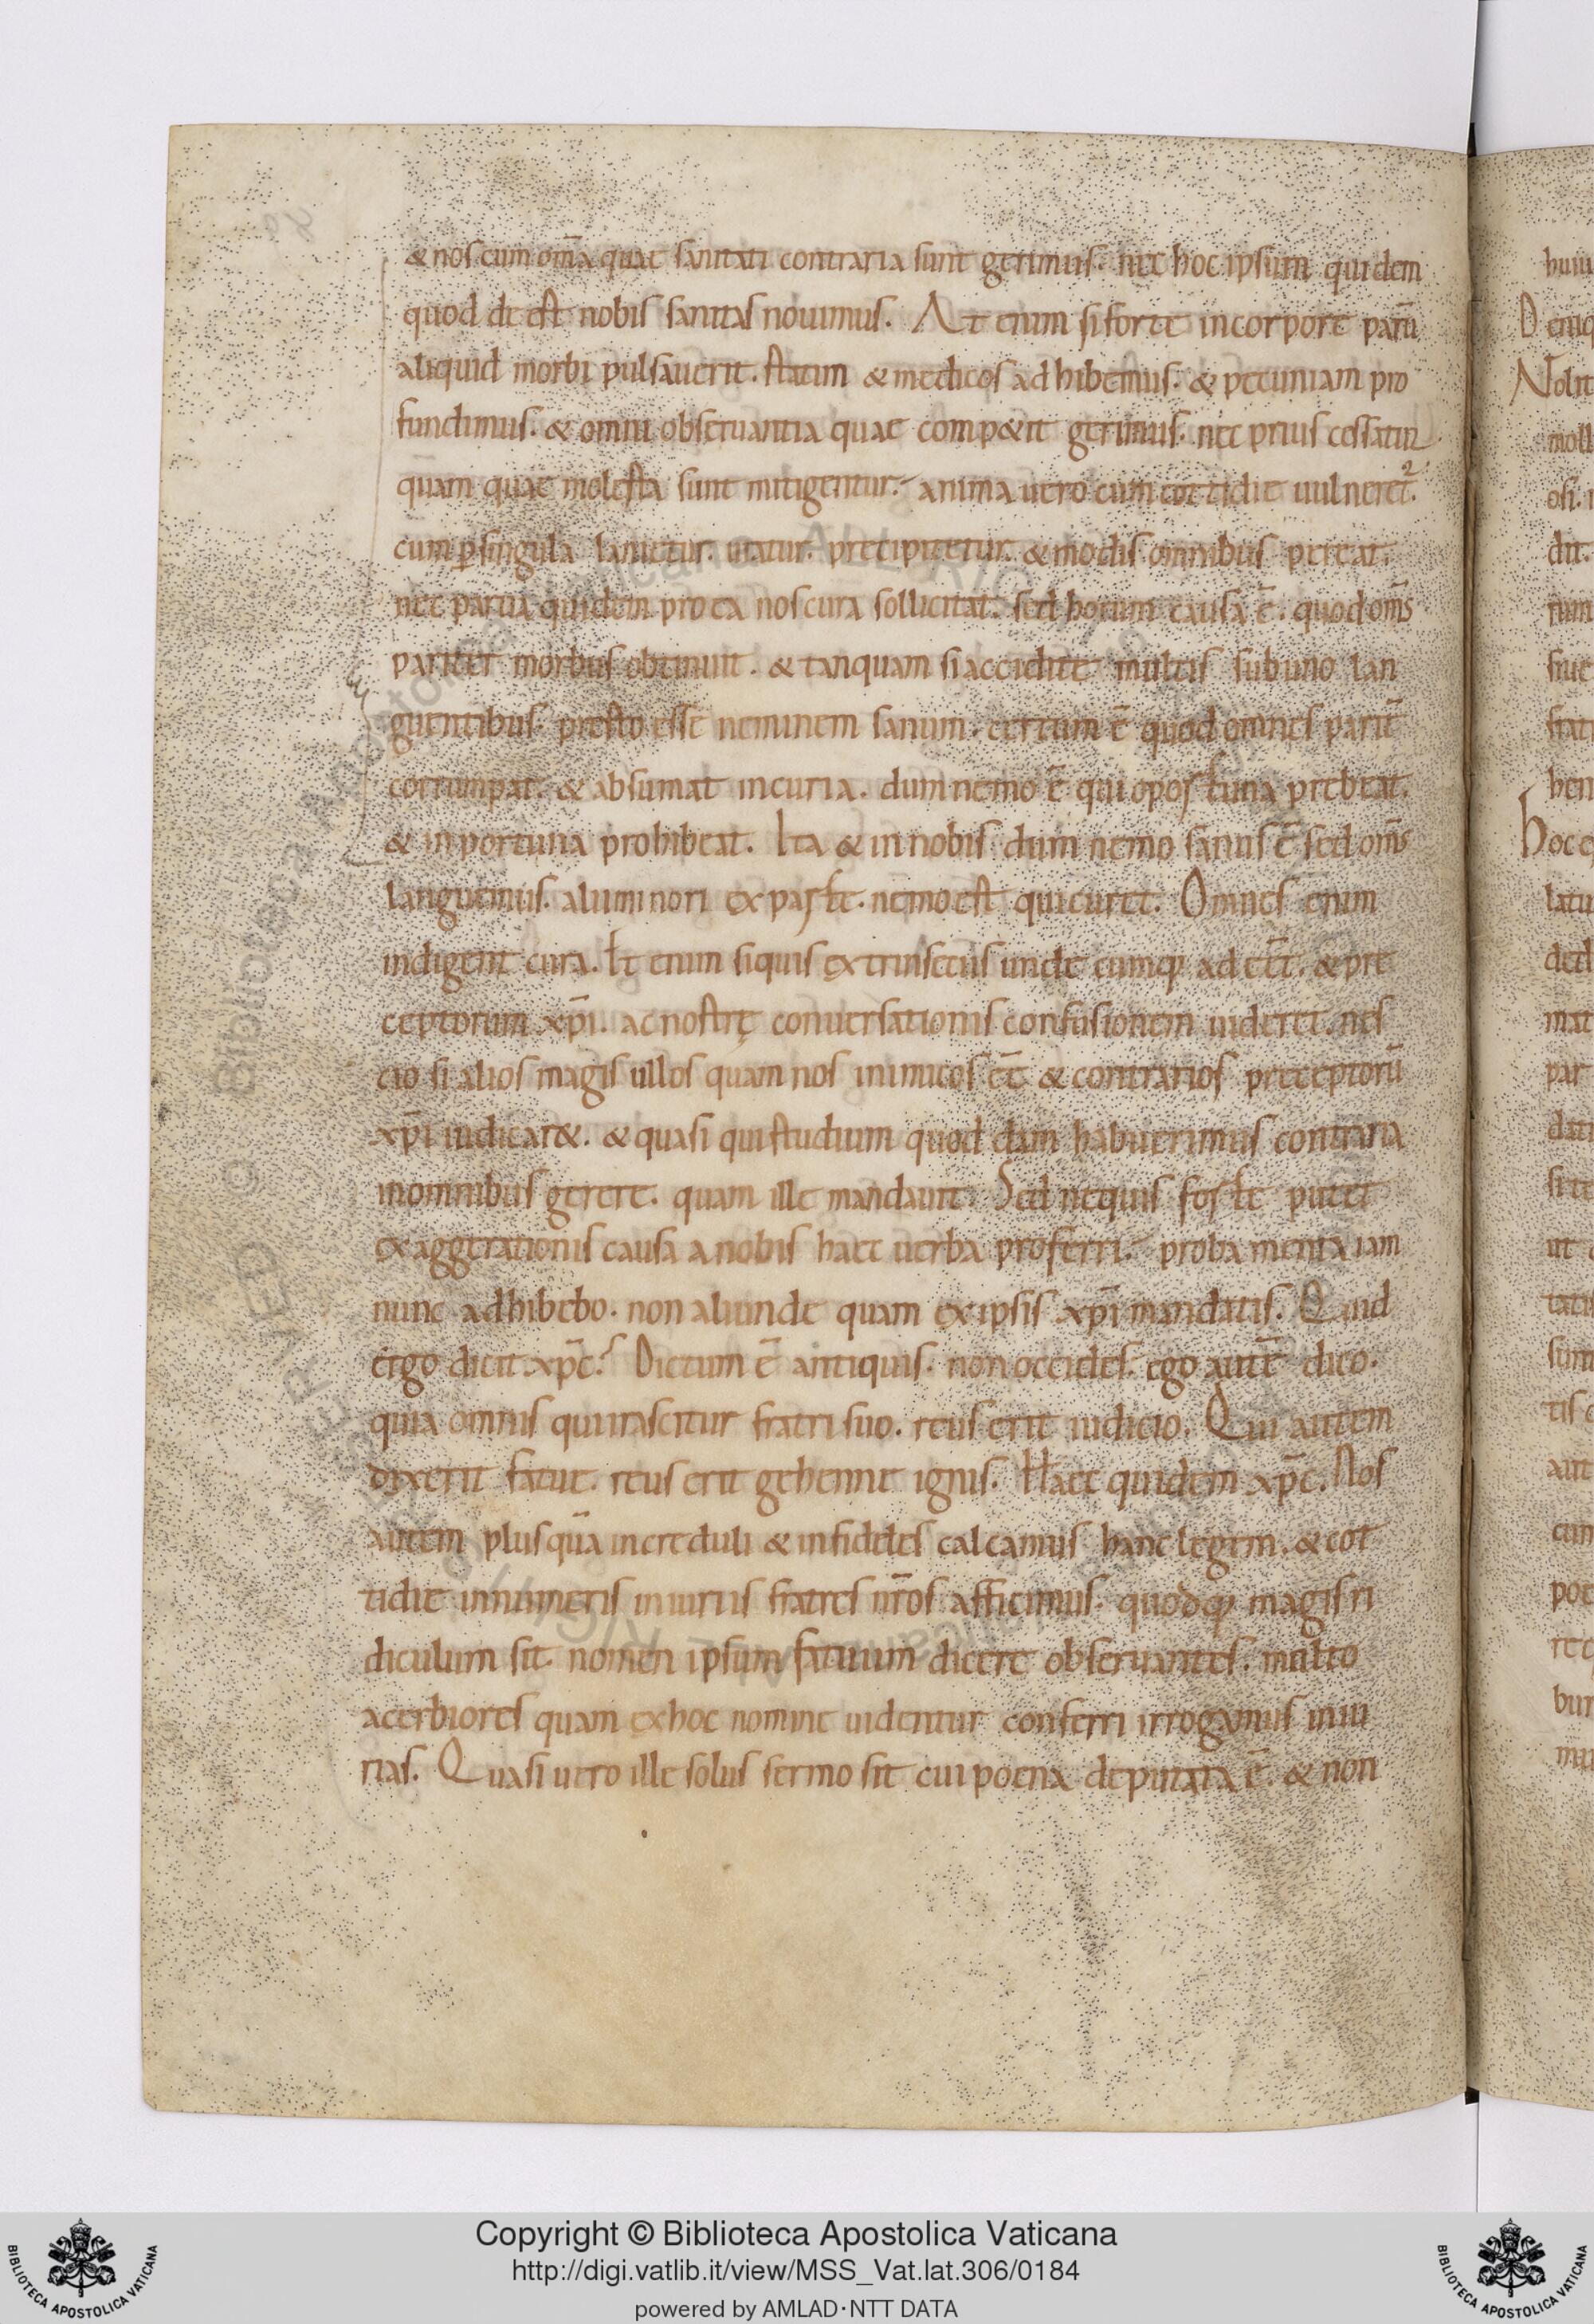 & nos cum om̄a quae sanitati contraria sunt gerimus. nec hoc ipsum quidem
quod de est nobis sanitas nouimus. At enim si forte in corpore parū
aliquid morbi pulsauerit. statim & medicos ad hibemus. & pecuniam pro
fundimus. & omni obseruantia quae comp&it gerimus. nec prius cessatur
quam quae molesta sunt mitigentur. anima uero cum cottidie uulneret̄.
cum p singula lanietur. uratur. precipitetur. & modis omnibus pereat.
nec parua quidem pro ea nos cura sollicitat. sed horum causa ē. quod om̄s
pariter morbus obtinuit. & tanquam si accidere multis sub uno lan
guentibus. presto esse neminem sanum. certum ē quod omnes parit̄
corrumpat. & absumat incuria. dum nemo ē qui oportuna prebeat.
& inportuna prohibeat. Ita & in nobis dum nemo sanus ē sed om̄s
languemus. alii minori ex parte. nemo est qui curet. Omnes enim
indigent cura. Et enim siquis extrinsecus unde cumq; ad eēt. & pre
ceptorum xp̄i. ac nostrę conuersationis confusionem uideret. nes
cio si alios magis ullos quam nos inimicos eēt & contrarios preceptorū
xp̄i iudicar&. & quasi qui studium quod dam habuerimus contraria
in omnibus gerere. quam ille mandauit. Sed nequis forte putet
exaggerationis causa a nobis haec uerba proferri. probamenta iam
nunc adhibebo. non aliunde quam ex ipsis xp̄i mandatis. Quid
ergo dicit xp̄c? Dictum ē antiquis. non occides. ego autē dico.
quia omnis qui irascitur fratri suo. reus erit iudicio. Qui autem
dixerit fatue. reus erit gehenne ignis. Haec quidem xp̄c. Nos
autem plusquā increduli & infideles calcamus hanc legem. & cot
tidie innumeris iniuriis fratres n̄ros afficimus. quodq; magis ri
diculum sit. nomen ipsum fatuum dicere obseruantes. multo
acerbiores quam ex hoc nomine uidentur conferri irrogamus iniu
rias. Quasi uero ille solus sermo sit cui poena deputata ē. & non
Copyright © Biblioteca Apostolica Vaticana
http://digi.vatlib.it/view/MSS_Vat.lat.306/0184
powered by AMLAD·NTT DATA
BIBLIOTECA APOSTOLICA VATICANA
BIBLIOTECA APOSTOLICA VATICANA